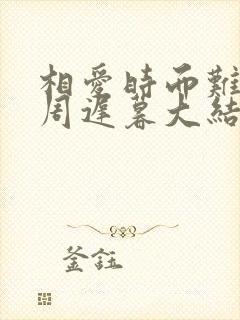 相愛時而難
周遲暮大結
釜鈺